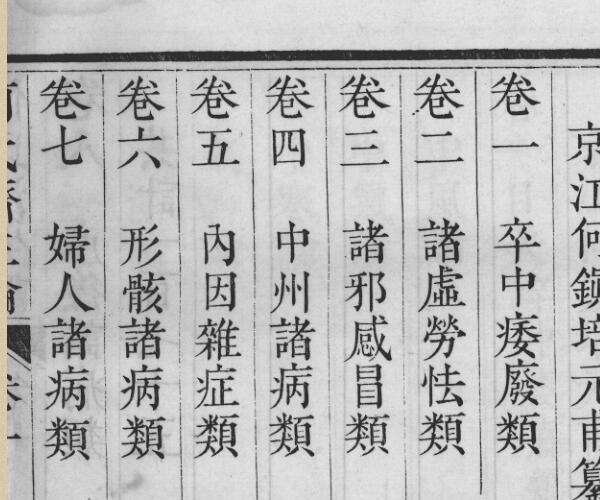 京江何鎭培元甫纂
卷一 卒中痿廢類
卷二 諸虛勞怯類
卷三 諸邪感冒類
卷四 中州諸病類
卷五 內因雜症類
卷六 形骸諸病類
卷七 婦人諸病類
何氏濟生論 卷一